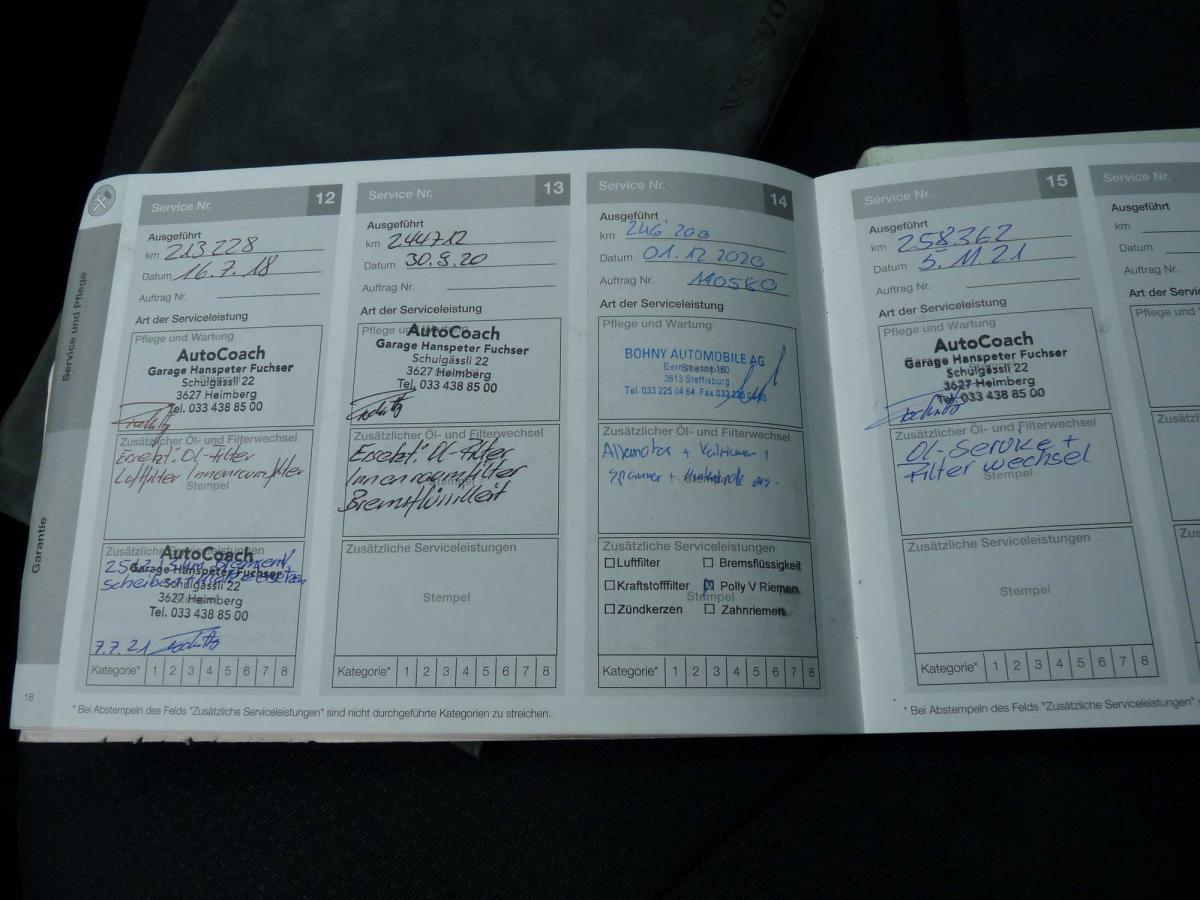 VOLVO
Service und Pflege
Garantie
Service Nr. 12
Ausgeführt
km 213228
Datum 16.7.18
Auftrag Nr.
Art der Serviceleistung
Pflege und Wartung
AutoCoach
Garage Hanspeter Fuchser
Schulgässli 22
3627 Heimberg
Tel. 033 438 85 00
Zusätzlicher Öl- und Filterwechsel
Ersetzt: Öl-Filter
Luftfilter Innenraumfilter
Stempel
Zusätzliche Serviceleistungen
AutoCoach
Garage Hanspeter Fuchser
Schulgässli 22
3627 Heimberg
Tel. 033 438 85 00
7.7.21
Kategorie* 1 2 3 4 5 6 7 8
Service Nr. 13
Ausgeführt
km 244712
Datum 30.9.20
Auftrag Nr.
Art der Serviceleistung
Pflege und Wartung
AutoCoach
Garage Hanspeter Fuchser
Schulgässli 22
3627 Heimberg
Tel. 033 438 85 00
Zusätzlicher Öl- und Filterwechsel
Ersetzt: Öl-Filter
Innenraumfilter
Bremsflüssigkeit
Zusätzliche Serviceleistungen
Stempel
Kategorie* 1 2 3 4 5 6 7 8
Service Nr. 14
Ausgeführt
km 246 200
Datum 01.12 2020
Auftrag Nr. 190580
Art der Serviceleistung
Pflege und Wartung
BOHNY AUTOMOBILE AG
3613 Steffisburg
Tel. 033 225 04 64 Fax 033
Zusätzlicher Öl- und Filterwechsel
Spanner +
Zusätzliche Serviceleistungen
Luftfilter Bremsflüssigkeit
Kraftstofffilter Polly V Riemen
Stempel
Zündkerzen Zahnriemen
Kategorie* 1 2 3 4 5 6 7 8
18
* Bei Abstempeln des Felds "Zusätzliche Serviceleistungen" sind nicht durchgeführte Kategorien zu streichen.
Service Nr. 15
Ausgeführt
km 258.362
Datum 5.11.21
Auftrag Nr.
Art der Serviceleistung
Pflege und Wartung
AutoCoach
Garage Hanspeter Fuchser
Schulgässli 22
3627 Heimberg
Tel. 033 438 85 00
Zusätzlicher Öl- und Filterwechsel
Öl-Service +
Filter wechsel
Stempel
Zusätzliche Serviceleistungen
Stempel
Kategorie* 1 2 3 4 5 6 7 8
* Bei Abstempeln des Felds "Zusätzliche Serviceleistungen" sind nicht durchgeführte Kategorien zu streichen.
Service Nr.
Ausgeführt
km
Datum
Auftrag Nr.